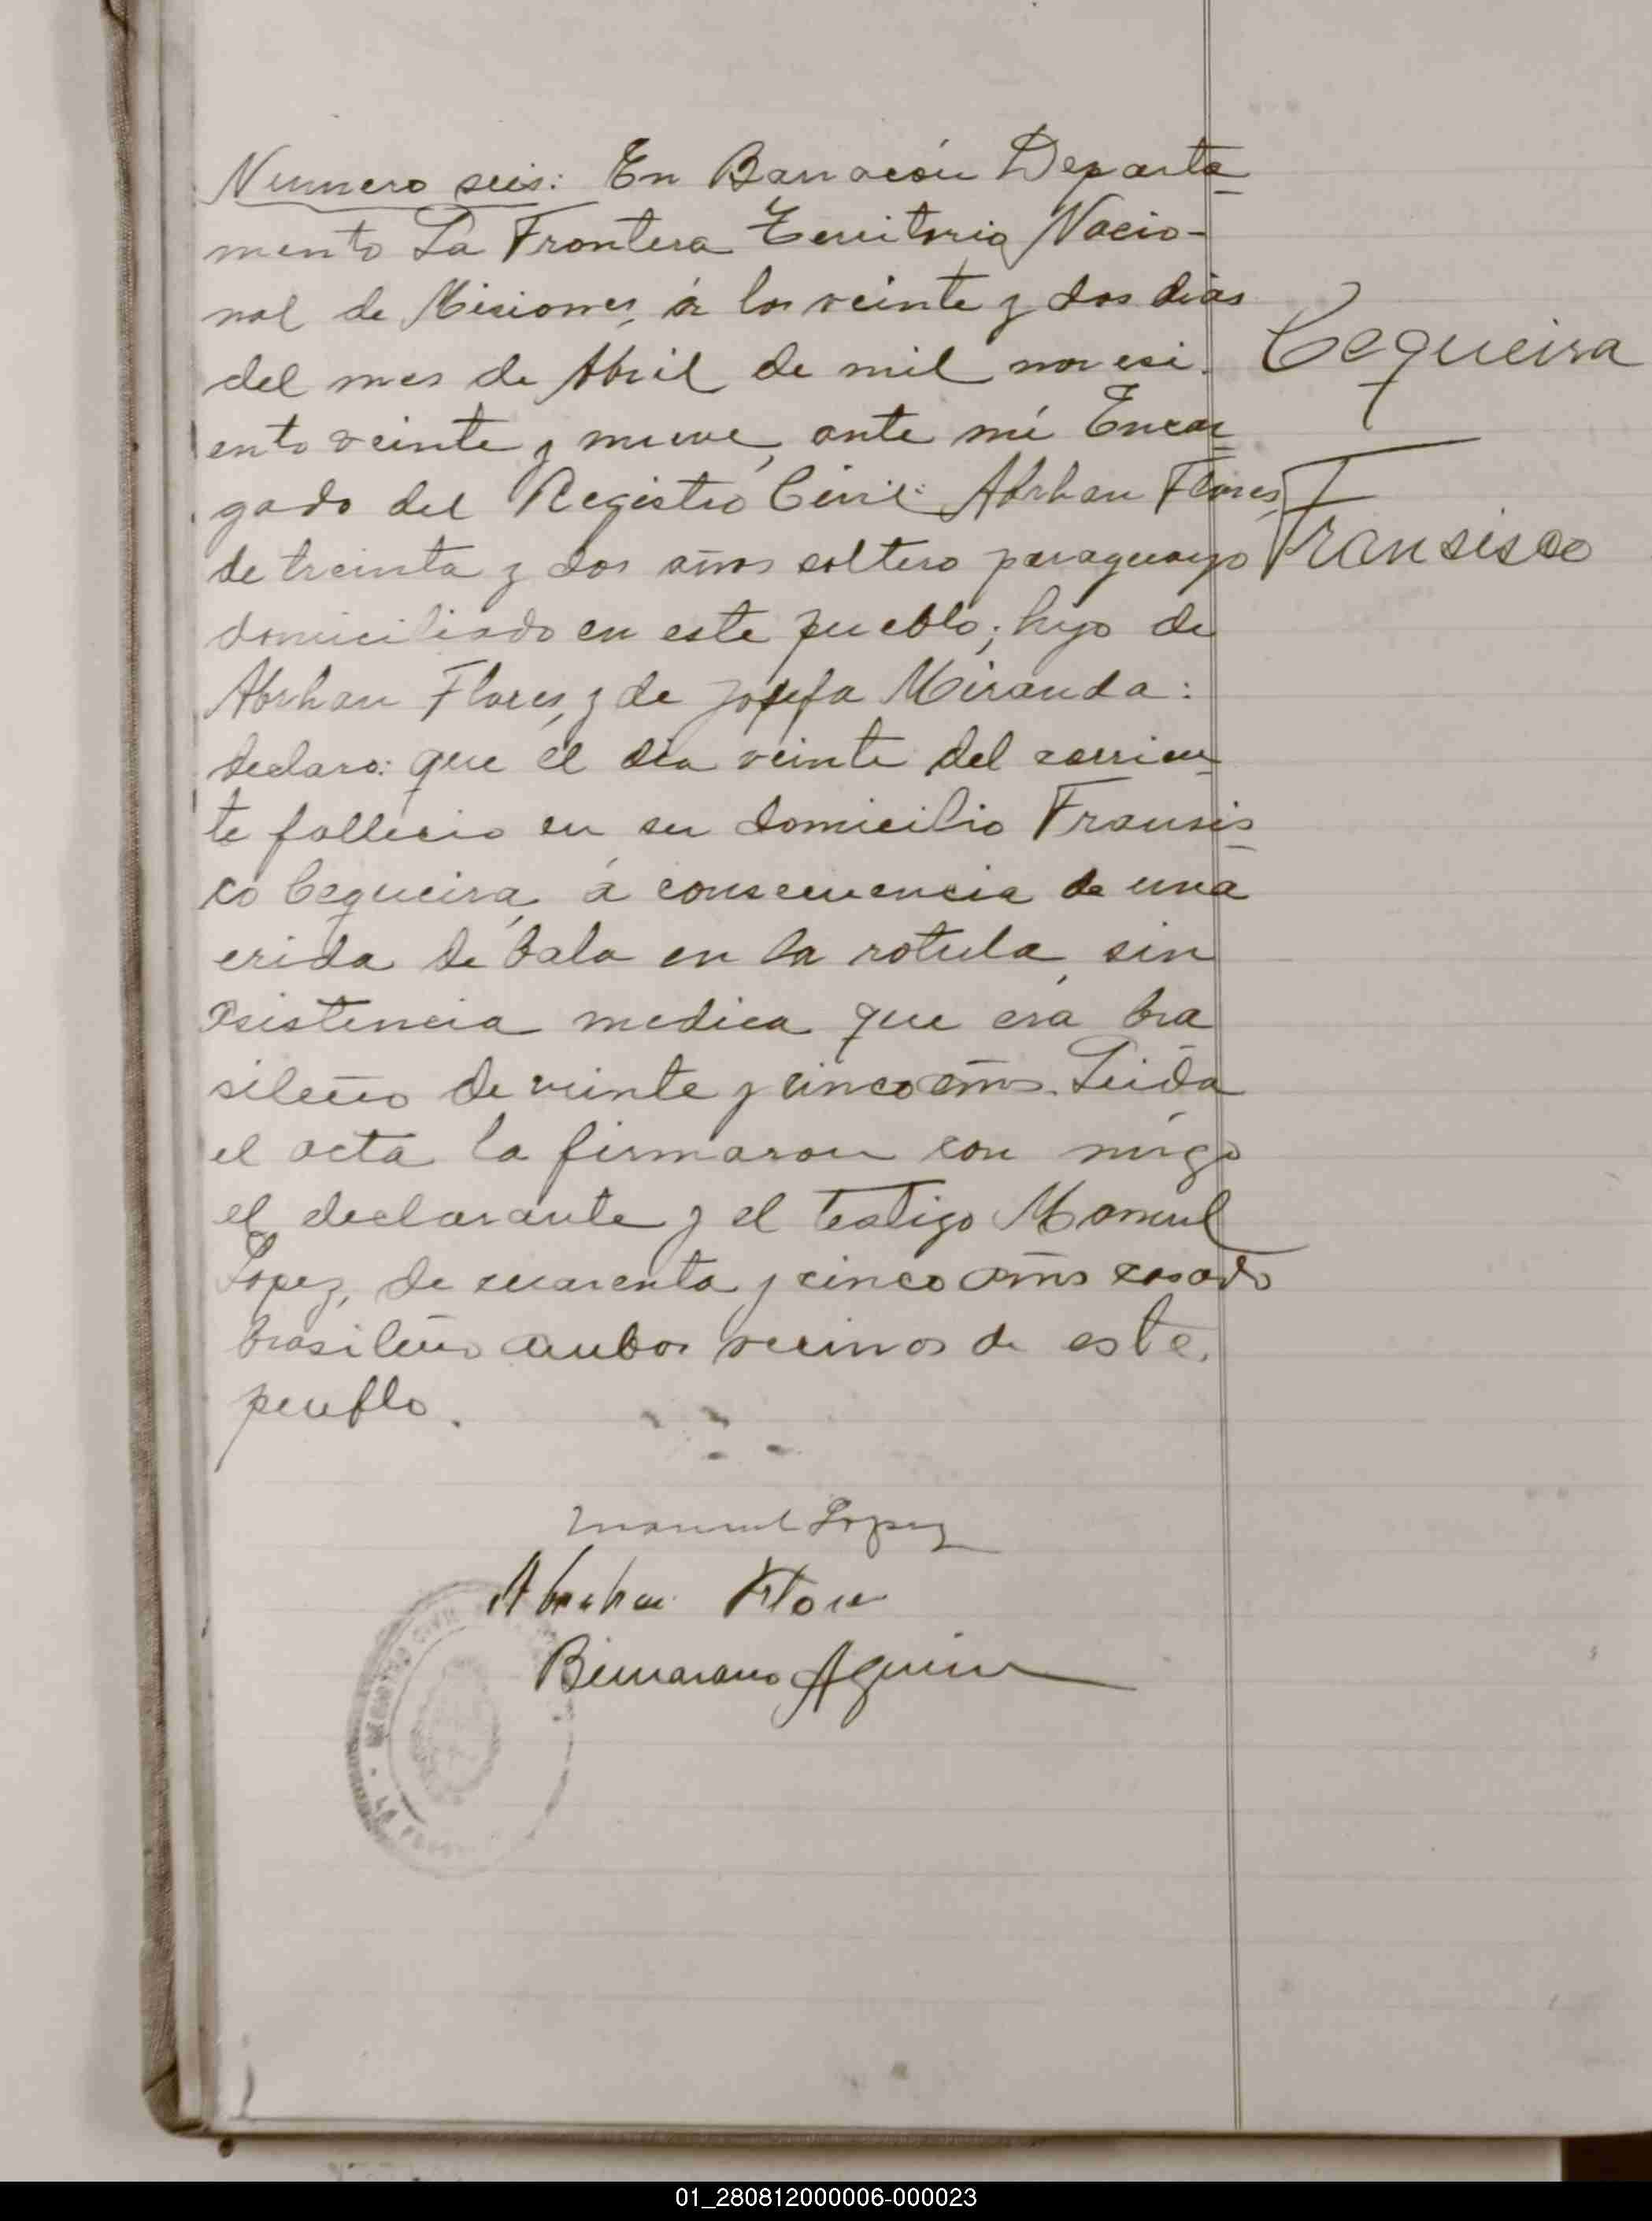 Numero seis: En Barracón Departa
mento La Frontera Territorio Nacio-
nal de Misiones, á los veinte y dos dias
del mes de Abril de mil novesi
ento veinte y nueve, ante mí Encar
gado del Registro Civil: Abrhan Flores,
de treinta y dos años soltero paraguayo
domiciliado en este pueblo; hijo de
Abrhan Flores, y de Josefa Miranda:
declaro: que el dia veinte del corrien
te fallecio en su domicilio Fransis
co Cequeira, á consecuencia de una
erida de bala en la rotula, sin
asistencia medica que era bra
sileño de veinte y cinco años. Leida
el acta la firmaron con migo
el declarante y el testigo Manuel
Lopez, de cuarenta y cinco años casado
brasileño ambos vecinos de este
pueblo.
Cequeira
Fransisco
Manuel Lopez
Abrahan Flore
REGISTRO CIVIL
LA
01_280812000006-000023